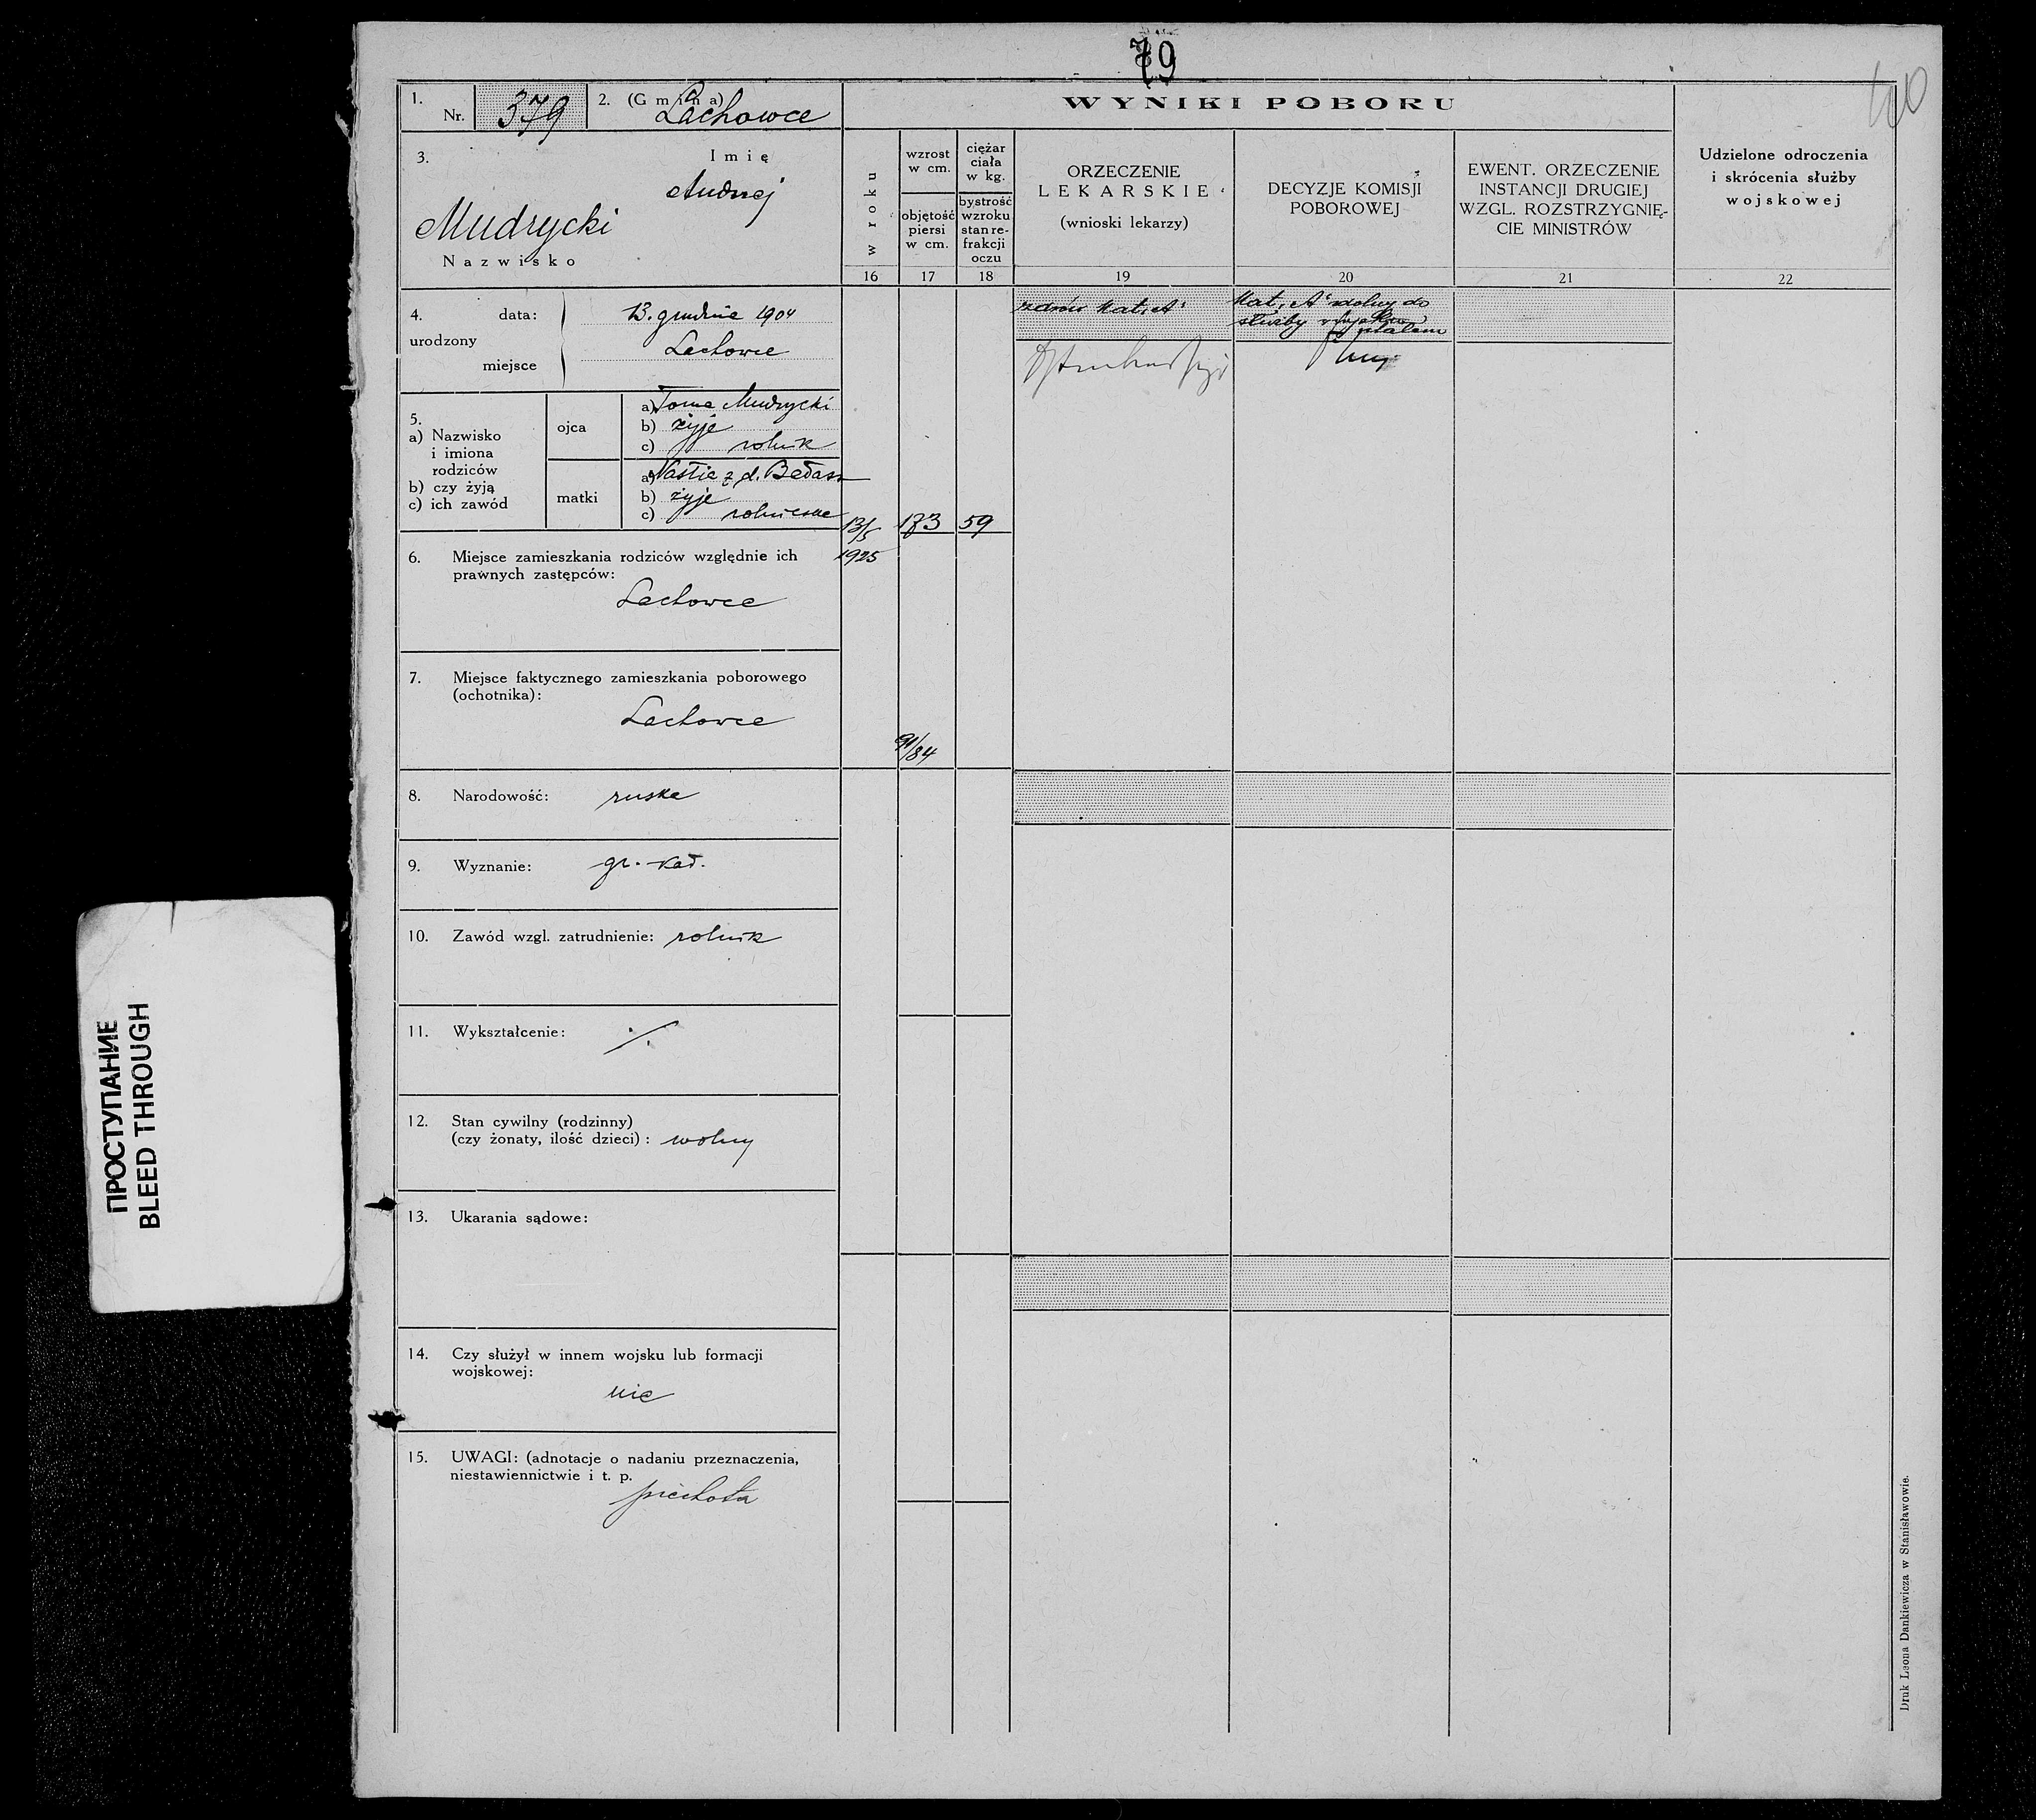 79
40
1. Nr. 379
2. (Gmina) Lachowce
WYNIKI POBORU
3.
Imię
Andrzej
Mudrycki
Nazwisko
w roku
wzrost w cm.
objętość piersi w cm.
ciężar ciała w kg.
bystrość wzroku stan refrakcji oczu
ORZECZENIE
LEKARSKIE
(wnioski lekarzy)
DECYZJE KOMISJI
POBOROWEJ
EWENT. ORZECZENIE
INSTANCJI DRUGIEJ
WZGL. ROZSTRZYGNIĘ-
CIE MINISTRÓW
Udzielone odroczenia
i skrócenia służby
wojskowej
16 17 18 19 20 21 22
4. urodzony
data: 13. grudnia 1904
miejsce Lachowce
5.
a) Nazwisko
i imiona
rodziców
b) czy żyją
c) ich zawód
ojca
a) Toma Mudrycki
b) żyje
c) rolnik
matki
a) Nastia z d. Bałasz
b) żyje
c) rolniczka
13/5
1925
173
59
91/84
zdrów Kat. „A"
Kat. „A" zdolny do
służby
6. Miejsce zamieszkania rodziców względnie ich
prawnych zastępców:
Lachowce
7. Miejsce faktycznego zamieszkania poborowego
(ochotnika):
Lachowce
8. Narodowość: ruska
9. Wyznanie: gr.-kat.
10. Zawód wzgl. zatrudnienie: rolnik
11. Wykształcenie: ·/.
12. Stan cywilny (rodzinny)
(czy żonaty, ilość dzieci): wolny
13. Ukarania sądowe:
14. Czy służył w innem wojsku lub formacji
wojskowej:
nie
15. UWAGI: (adnotacje o nadaniu przeznaczenia,
niestawiennictwie i t. p.
piechota
Druk Leona Dankiewicza w Stanisławowie.
ПРОСТУПАНИЕ
BLEED THROUGH